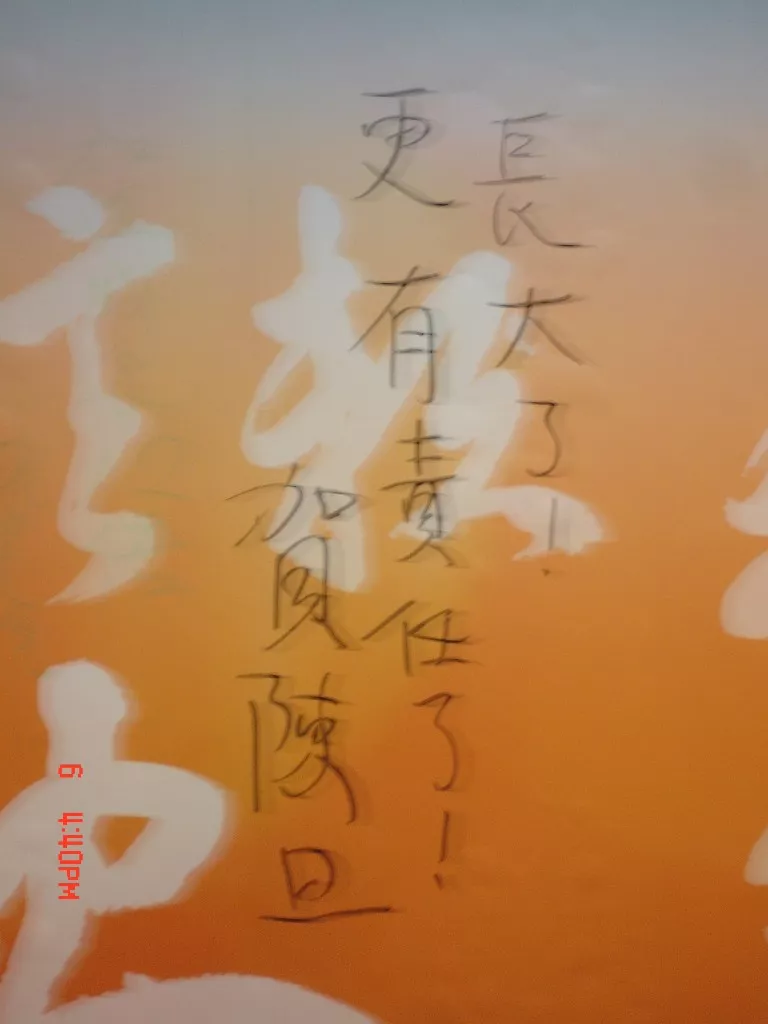 長大了！
更有責任了！
賀陳旦
6 4:40PM